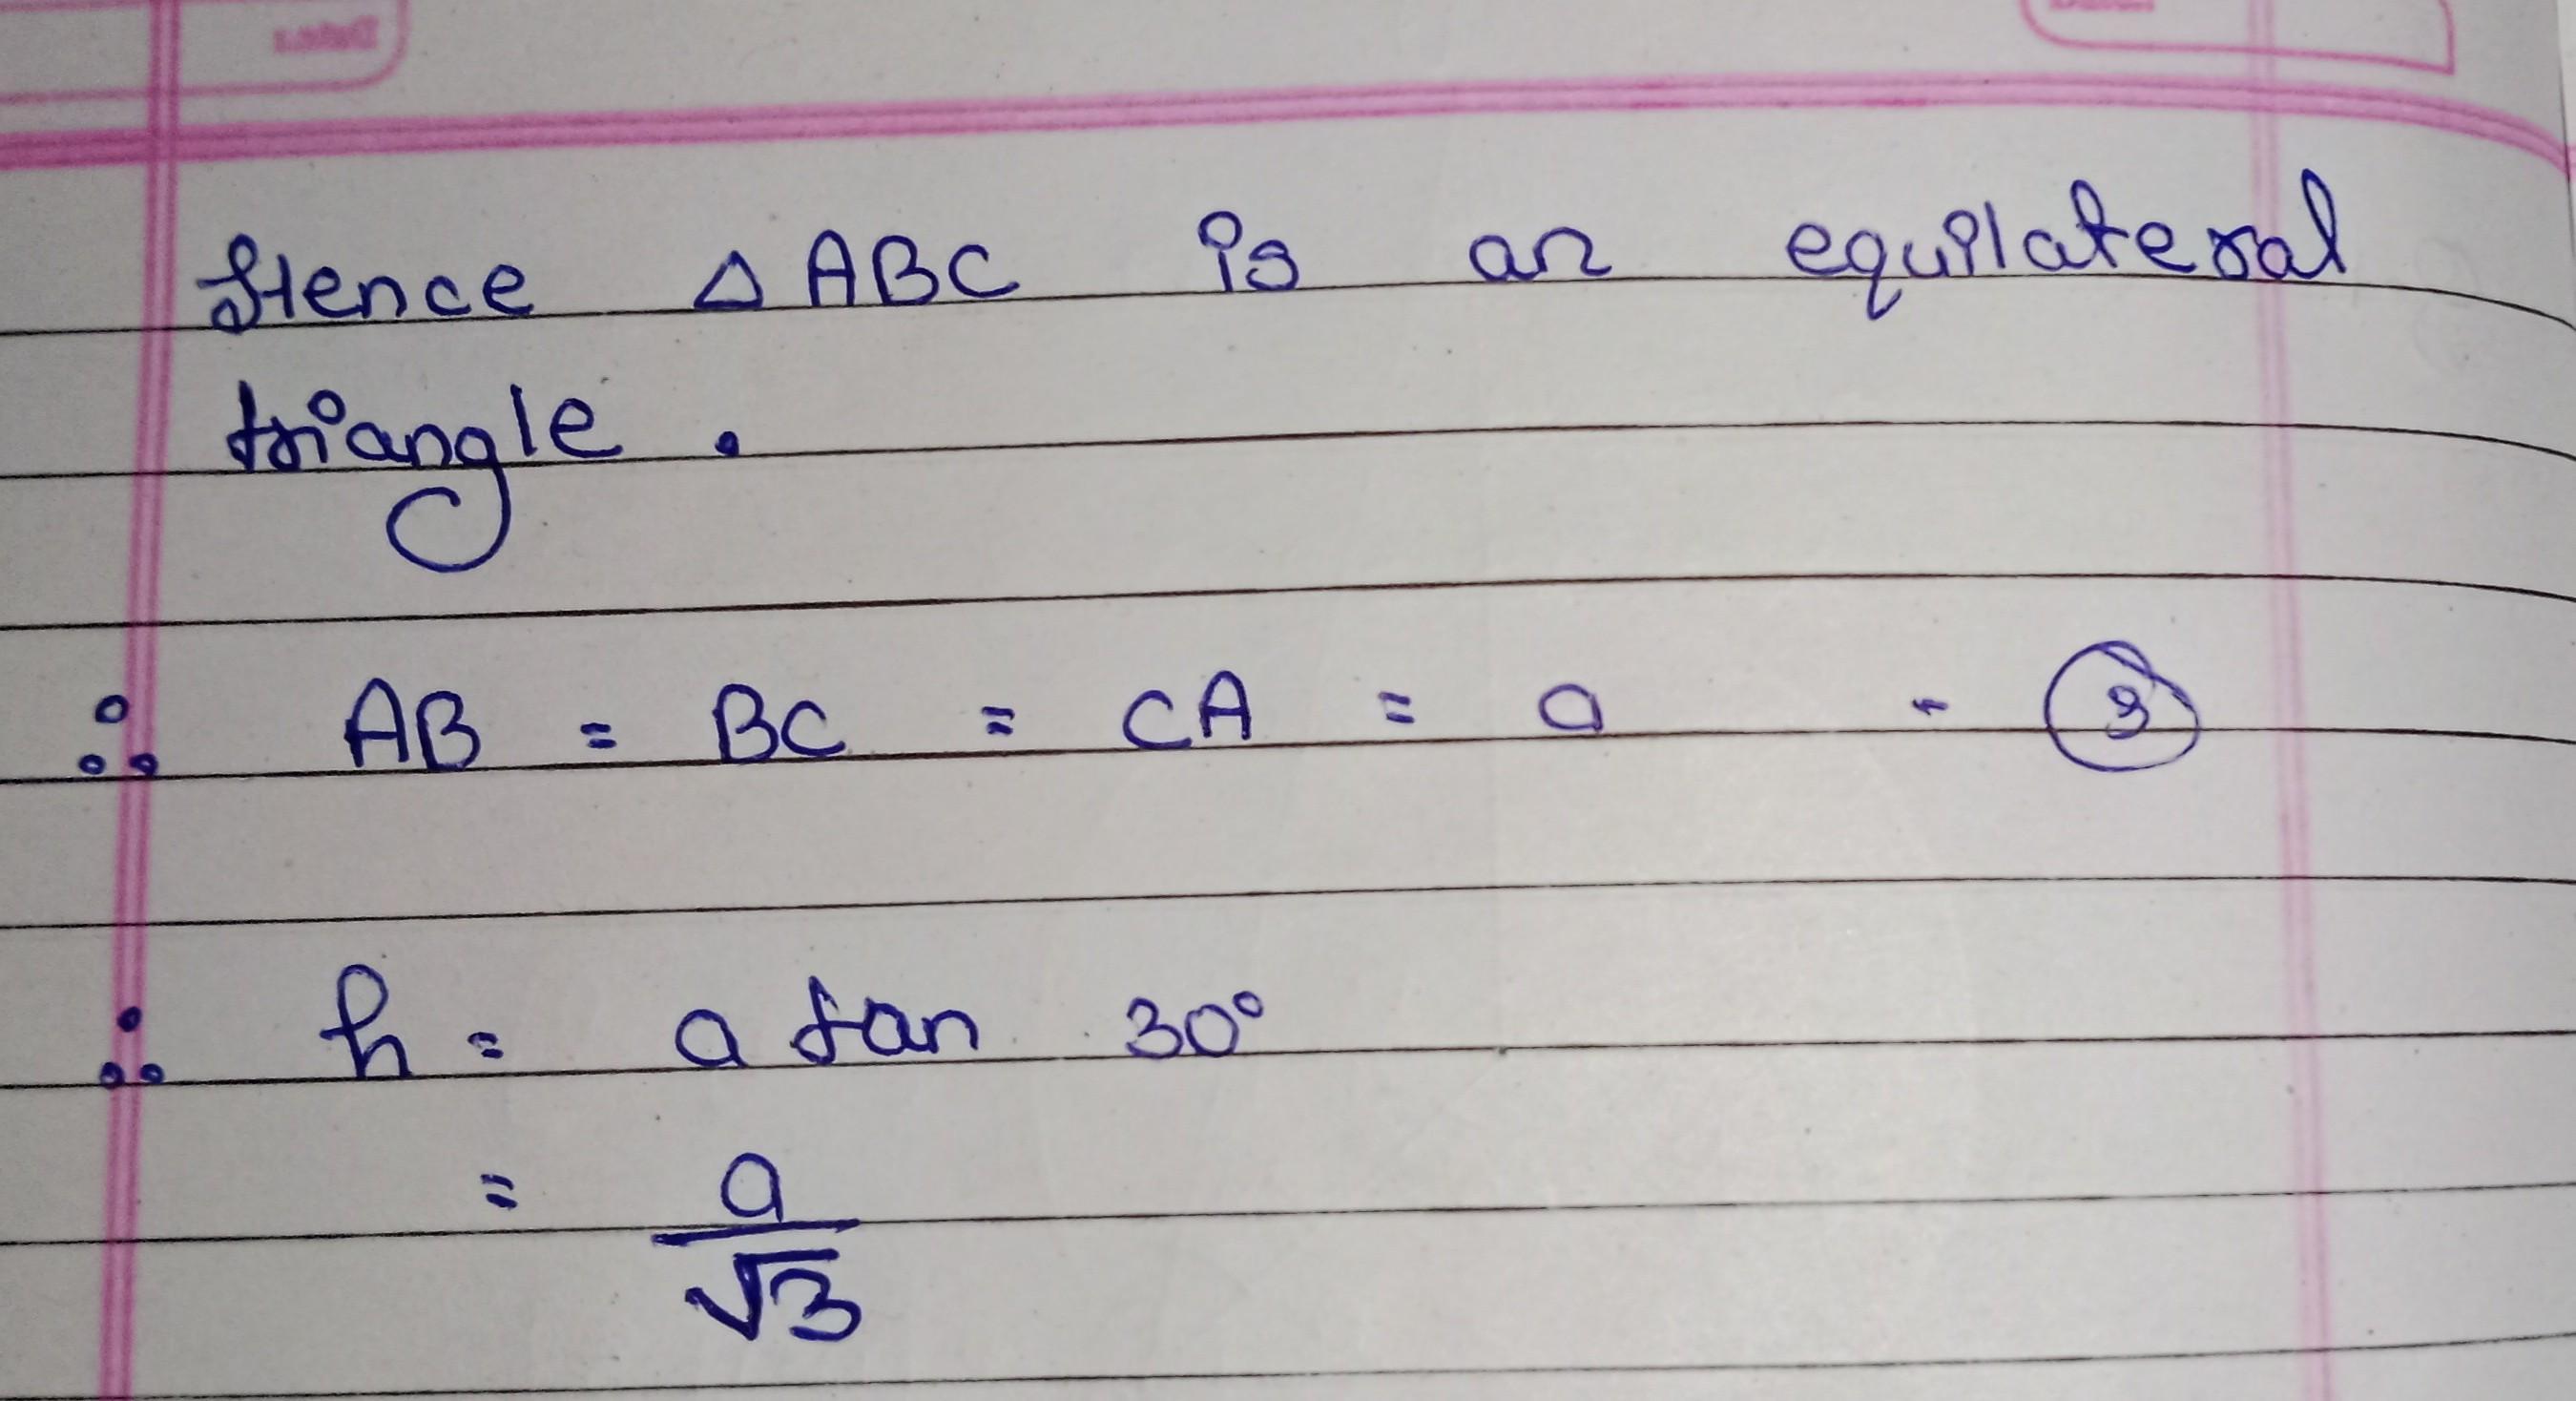 Hence △ ABC is an equilateral
triangle .
∴ AB = BC = CA = a - ③
∴ h = a tan 30°
= a/√3